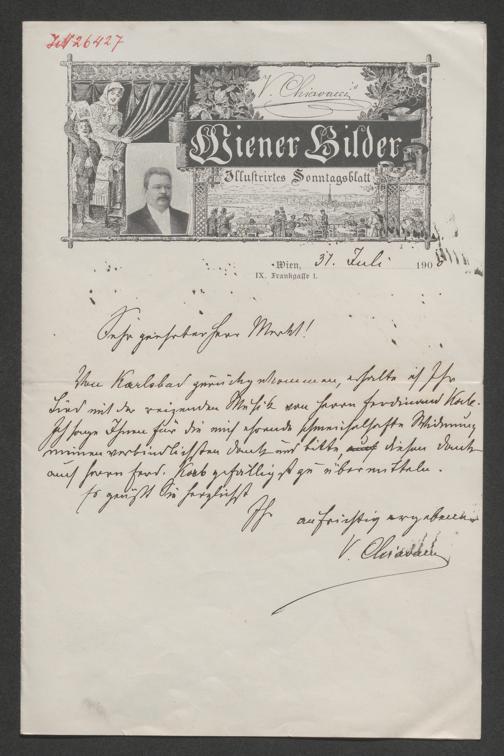 JN 26427
V. Chiavacci's
Wiener Bilder
Illustrirtes Sonntagsblatt
Wien, 31. Juli 190
IX. Frankgasse 1.
Sehr geehrter Herr Merkt!
Von Karlsbad zurückgekommen, erhalte ich Ihr
Lied mit der reizenden Musik von Herrn Ferdinand Kolb.
Ich sage Ihnen für die mich ehrende schmeichelhafte Widmung
meinen verbindlichsten Dank und bitte auch diesen Dank
auch Herrn Ferd. Kolb gefälligst zu übermitteln.
Es grüßt Sie herzlichst
Ihr aufrichtig ergebener
V. Chiavacci